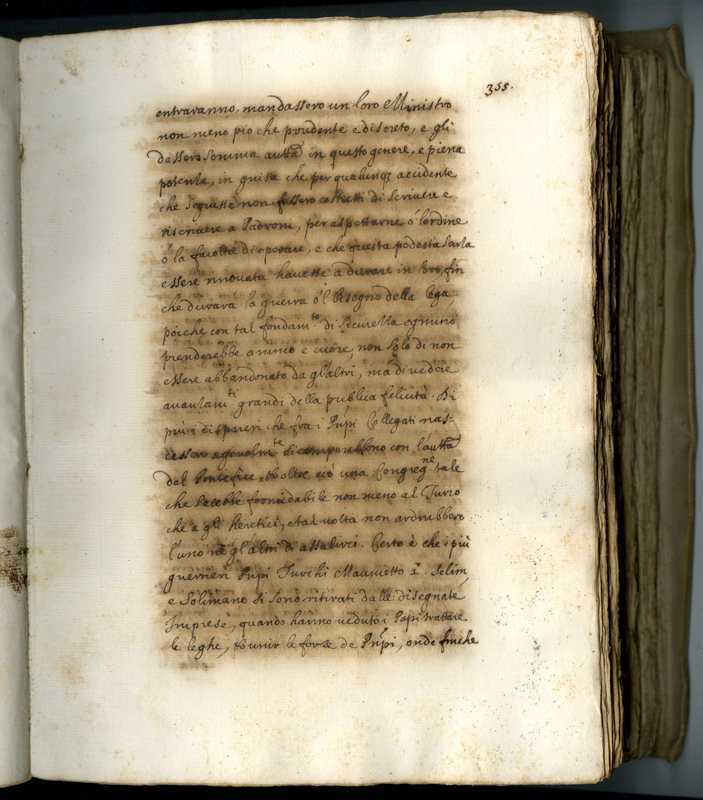 355.
entraranno, mandassero un loro Ministro
non meno pio che prudente e discreto, e gli
dessero somma autta in questo genere, e piena
potenza, in guisa che per qualunq; accidente
che segiasse non fussero costretti di scrivere e
riscrivere a Padroni, per aspettarne ò l'ordine
ò la facoltà di operare, e che questa podestà senza
essere rinovata havesse a durare in loro, fin
che durava la guerra ò l bisogno della lega,
poiche con tal fondam.to di sicurezza ogniuno
prenderebbe animo e cuore, non solo di non
essere abbandonato da gl'altri, ma di vedere
avanzam.ti grandi della publica felicità. Di
più i dispareri che fra i Prpi Collegati nas-
cessero agevolm.te si comporebbono con l'autta
del Pontefice, et oltre ciò una Congreg.ne tale
che sarebbe formidabile non meno al Turco
che a gli heretici, e tal volta non ardirebbero
l'uno nè gl'altri di assalirci. Certo è che i più
guerrieri Prpi Turchi Maumetto 2. Selim,
e Solimano si sono ritirati dalle disegnate
Imprese, quando hanno veduto i Papi trattare
le leghe, et unir le forze de Prpi, onde finche